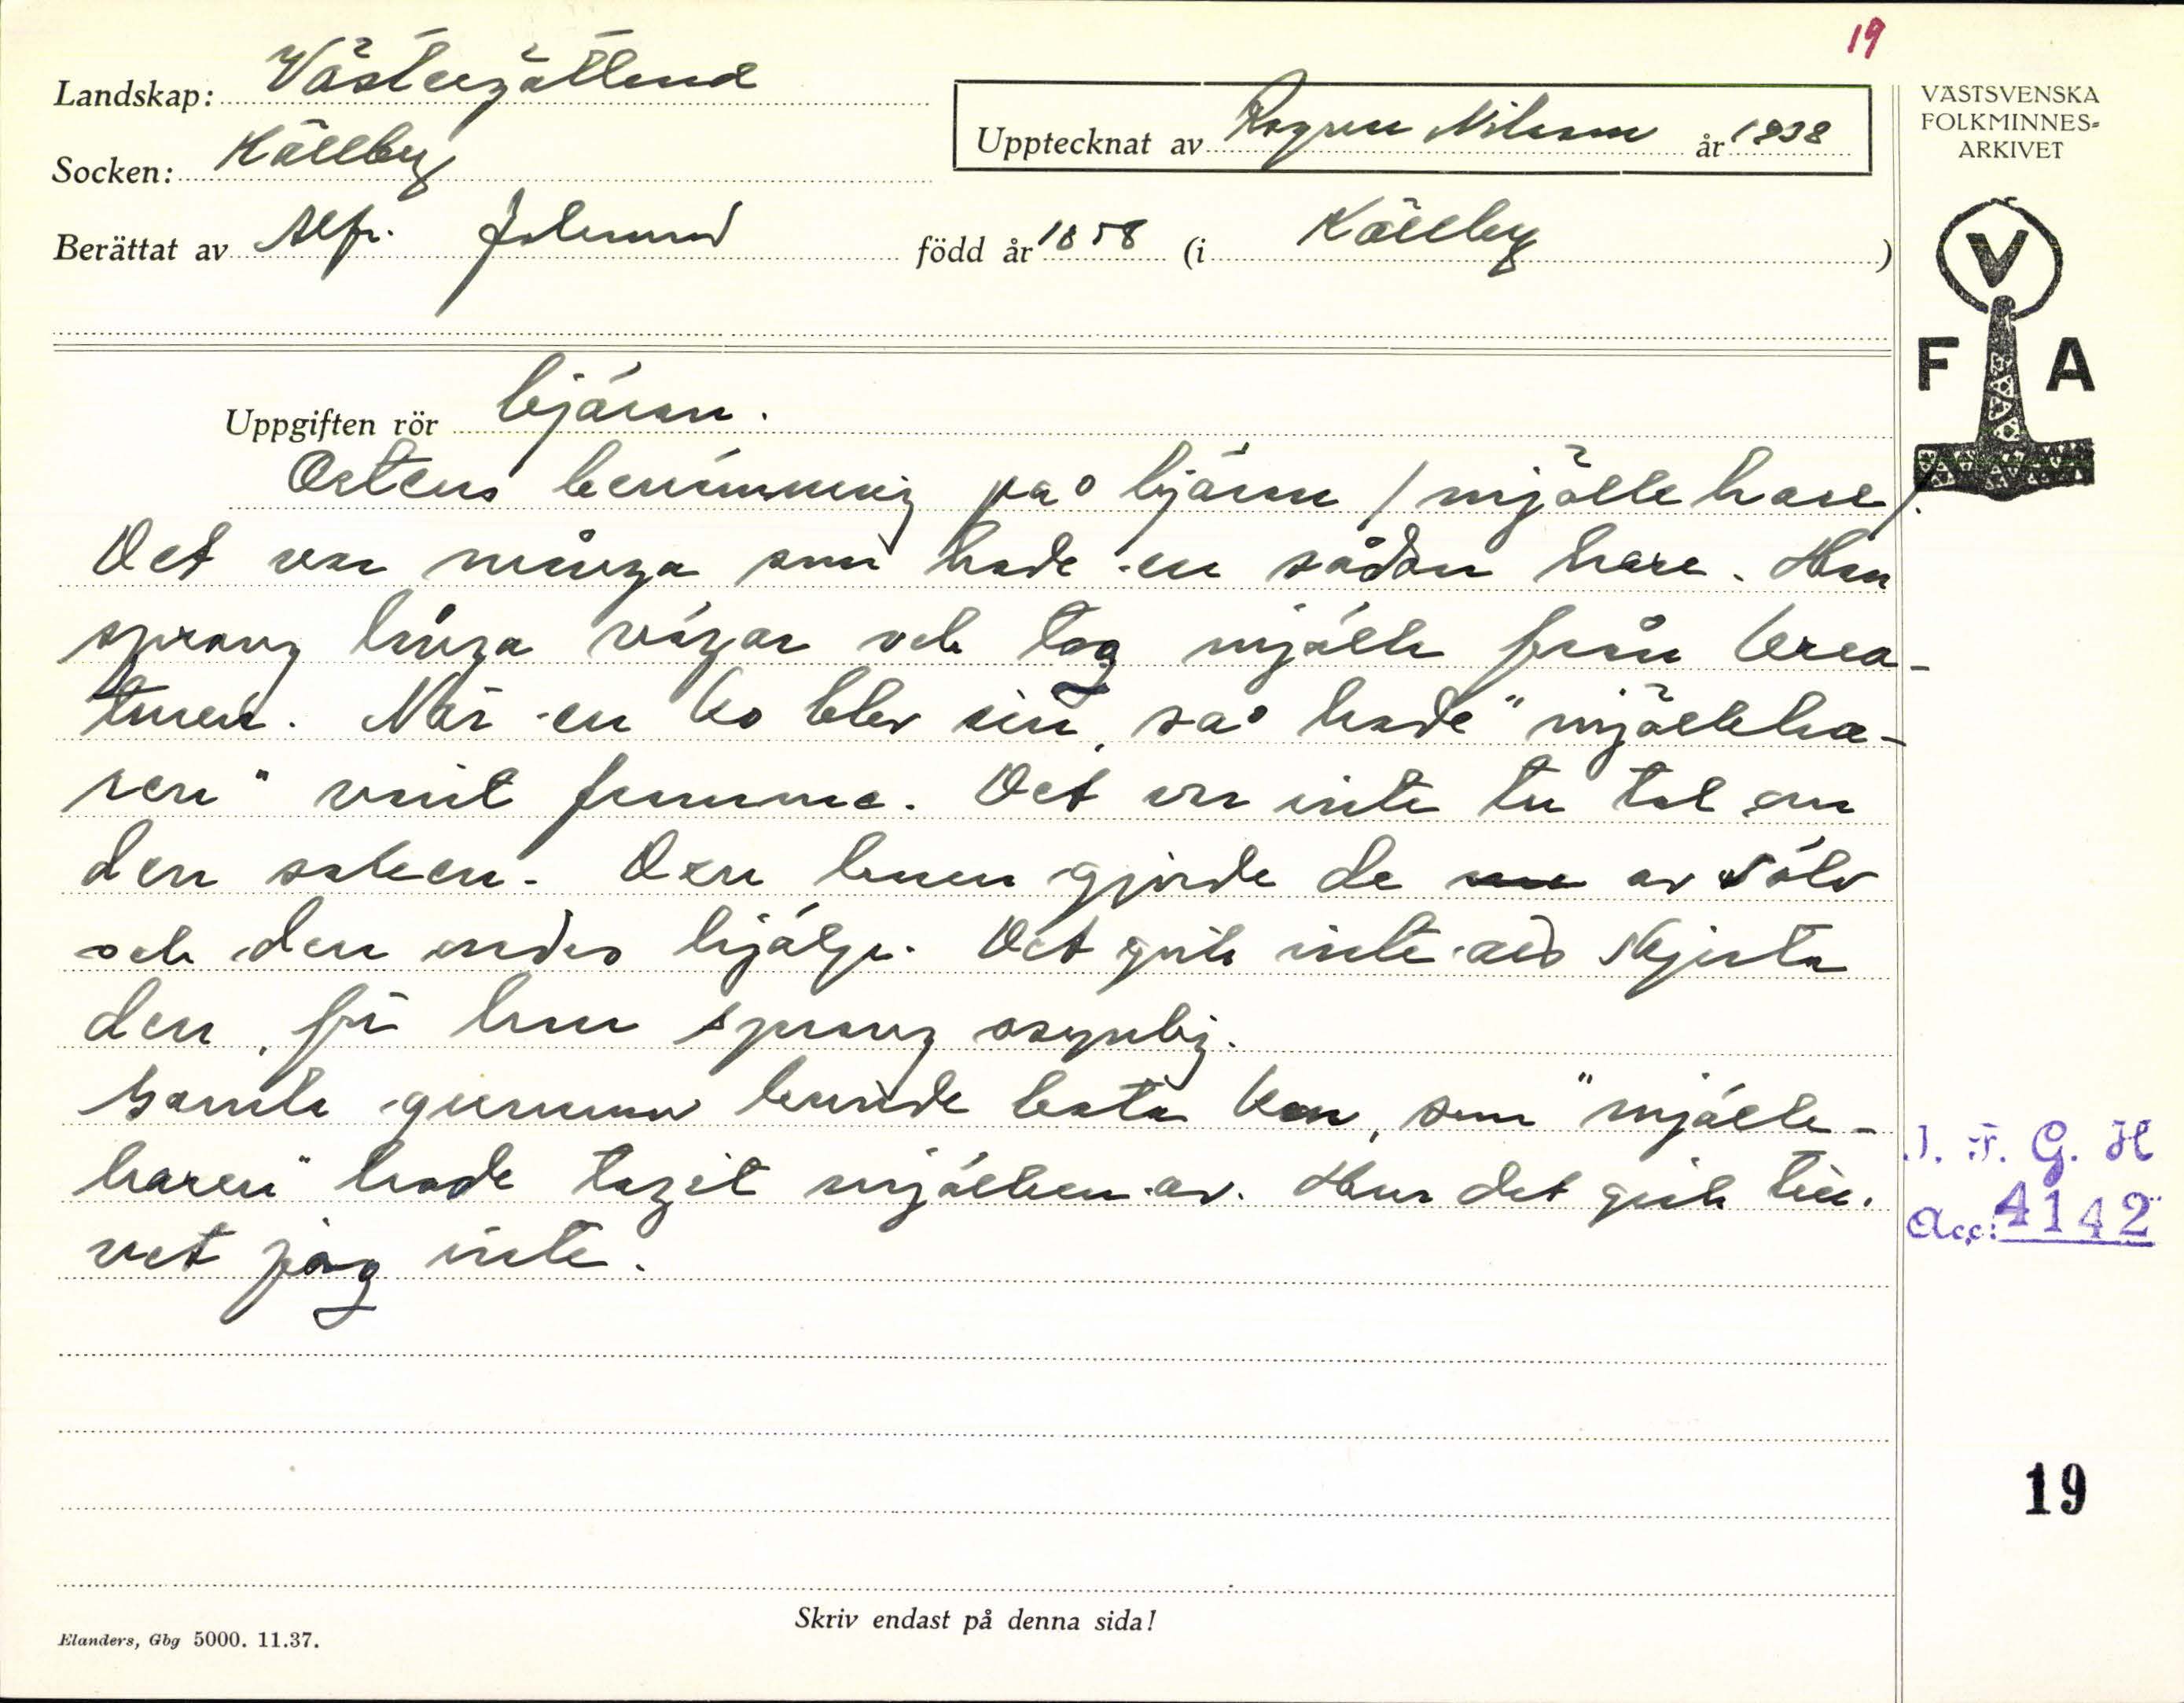 19
Landskap: Västergötland
Socken: Källby
Upptecknat av Ragnar Nilsson år 1938
Berättat av Alfr. född år 1858 (i Källby)
VÄSTSVENSKA
FOLKMINNES-
ARKIVET
V
F A
Uppgiften rör bjäran.
Ortens benämning på bjäran / mjölkhare /.
Det var många som hade en sådan hare. Han
sprang långa vägar och tog mjölk från krea-
turen. När en ko blev sin, så hade "mjölkha-
ren" varit framme. Det var inte tu tal om
den saken. Den haren gjorde de av sölv
och den ondes hjälp. Det gick inte að skjuta
den, för han sprang osynlig.
Gamla gummor kunde bota kor, som "mjölk-
haren" hade tagit mjölken av. Hur det gick till.
vet jag inte.
I. F. G. H
Acc: 4142
19
Skriv endast på denna sida!
Elanders, Gbg 5000. 11.37.